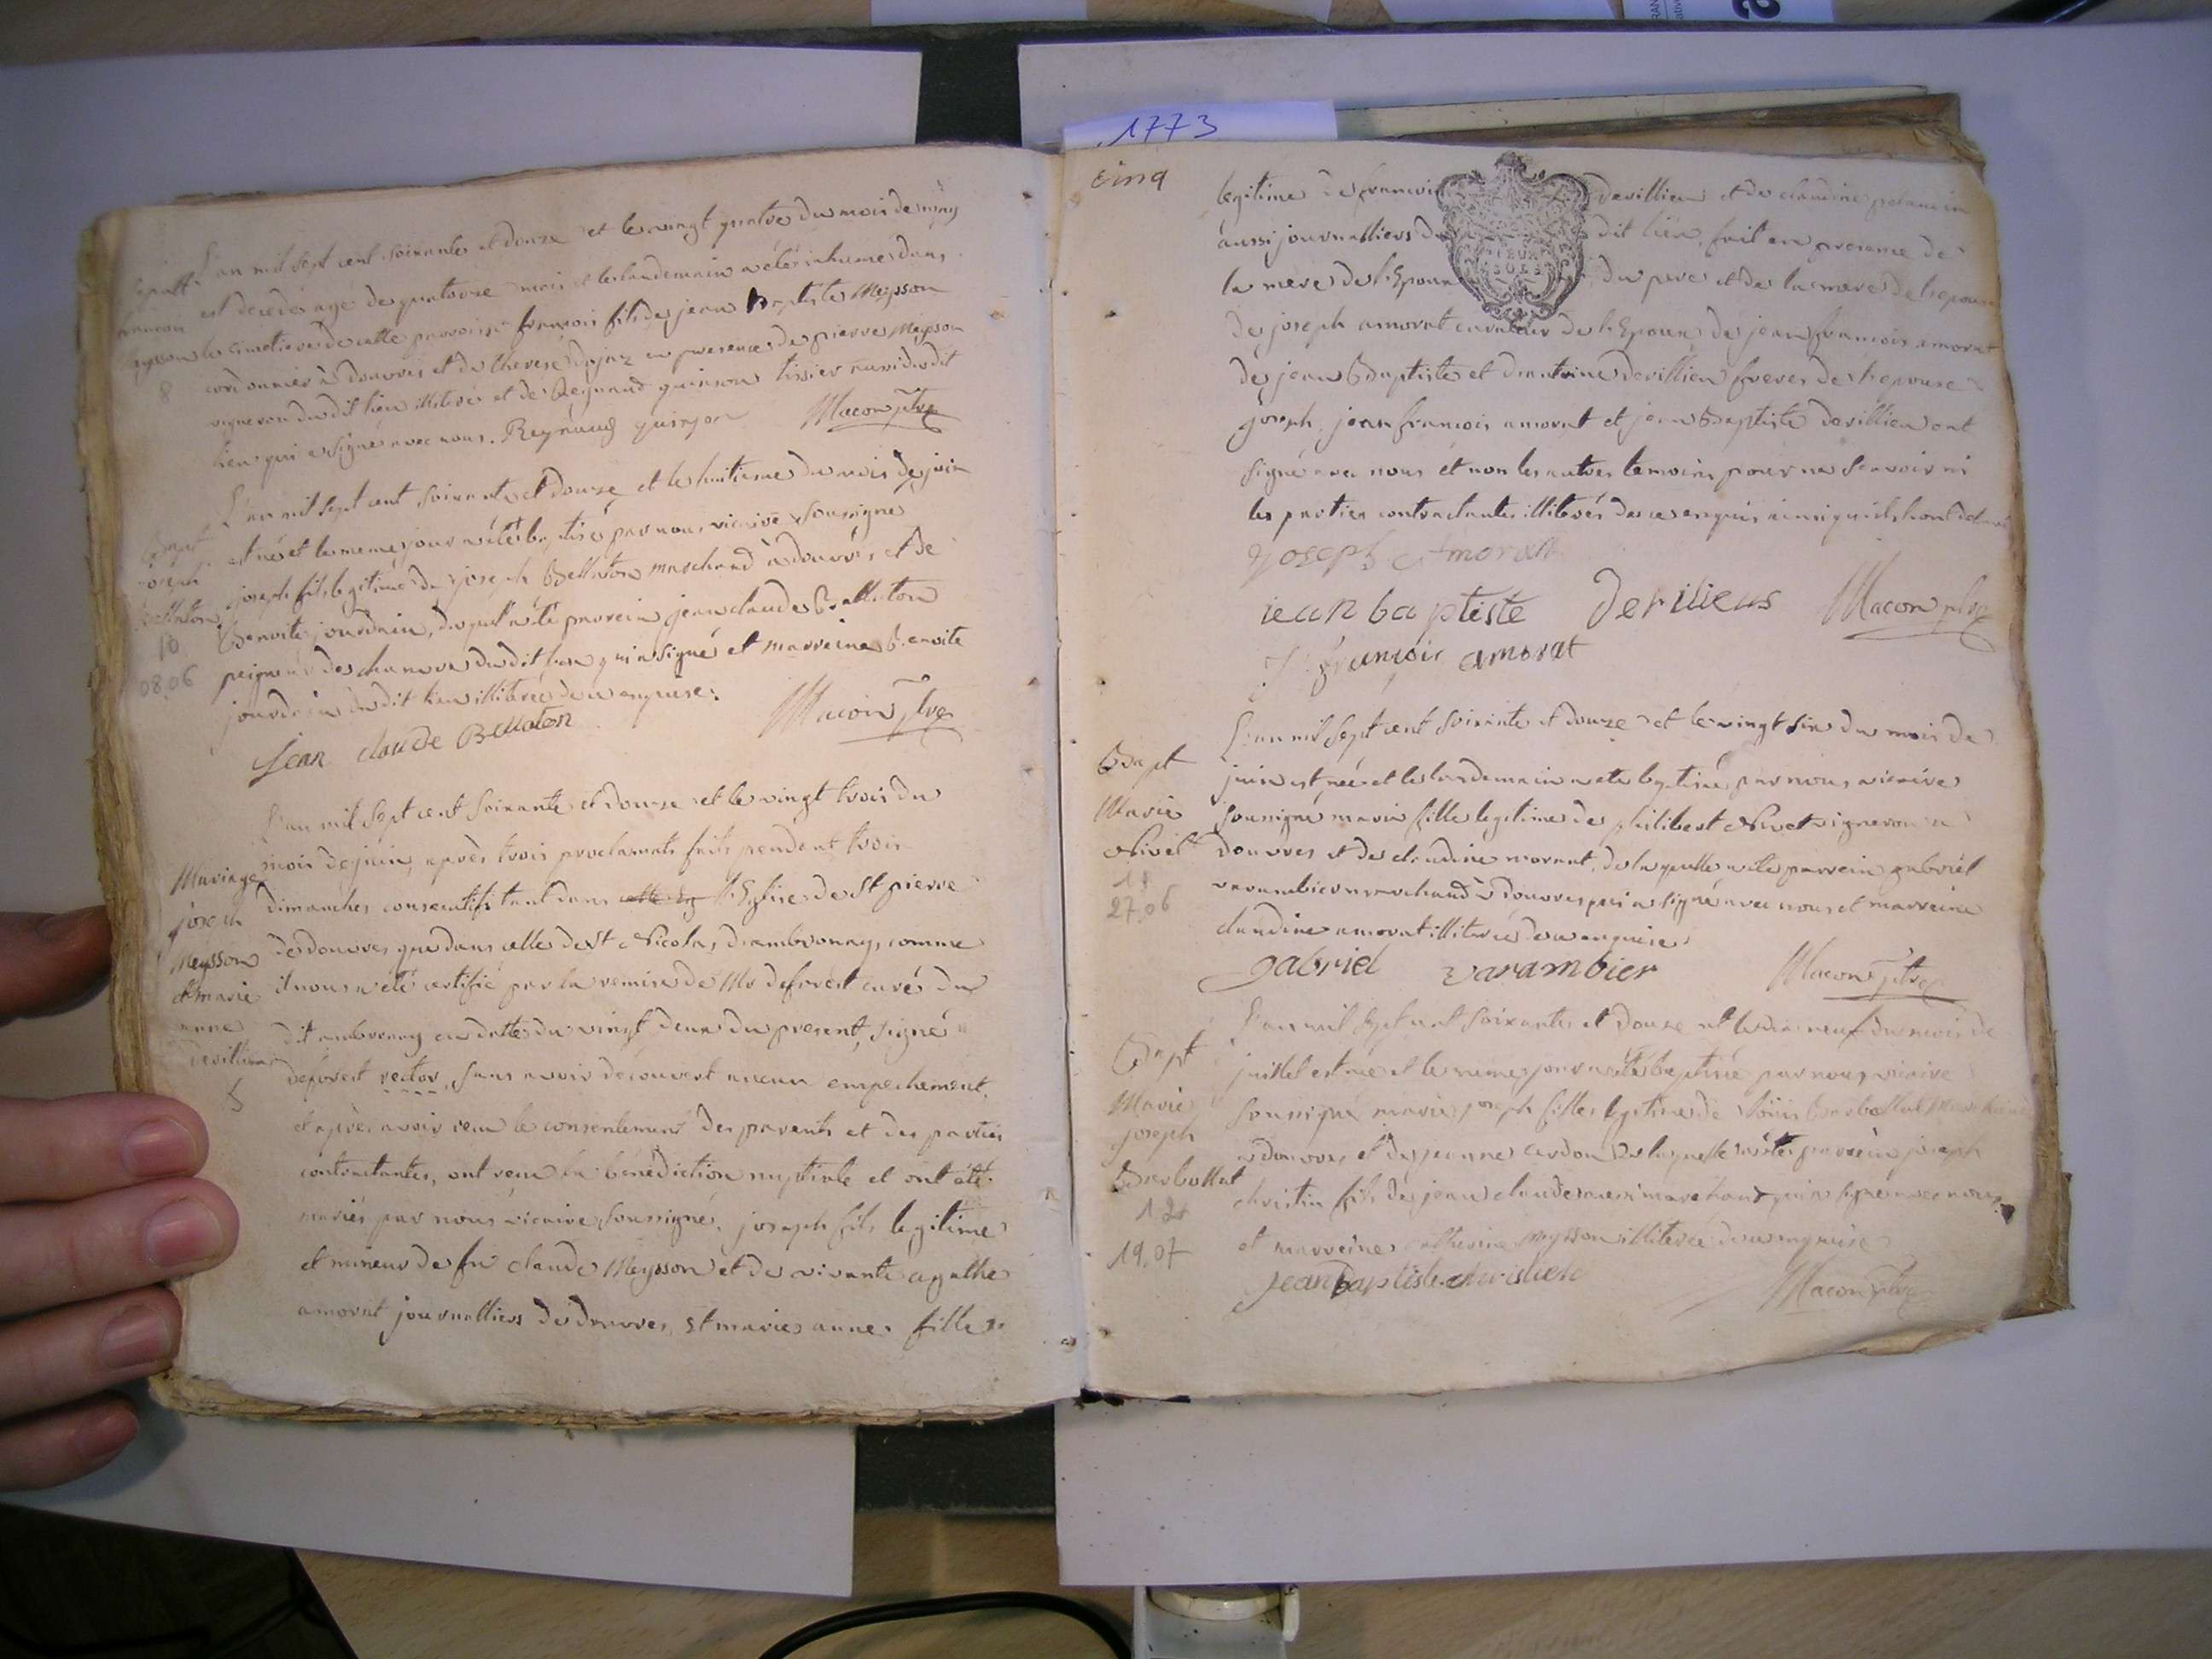 L'an mil sept cent soixante et douze et le vingt quatre du mois de may
est decedé agé de quatorze mois et le landemain a été inhumé dans
le cimetiere de cette paroisse francois fils de jean baptiste Meysson
cordonnier à douvres et de therese en presence de pierre Meysson
vigneron du dit lieu illiteré et de Reynaud quinson tissier aussi du dit
lieu qui a signé avec nous. Reynaud quinson Macon ptre
sepult
francois
Meysson
8
L'an mil sept cent soixante et douze et le huitieme du mois de juin
est né et le meme jour a été batisé par nous vicaire soussigné
joseph fils legitime de joseph Bellaton marchand à douvres et de
Benoite jourdain, duquel a été parrein jean claude Bellaton
peigneur de chanvre du dit lieu qui a signé et marreine Benoite
jourdain du dit lieu illiterée de ce enquise.
Jean claude Bellaton Macon ptre
Bapt
joseph
Bellaton
10
08.06
L'an mil sept cent soixante et douze et le vingt trois du
mois de juin, après trois proclamats faits pendent trois
dimanches consecutifs tant dans cette Eg l'Eglise de St pierre
de douvres que dans celle de St Nicolas d'ambronay, comme
il nous a été certifié par la remise de Mr deforest curé du
dit ambronay en datte du vingt deux du present, signé
deforest rector, sans avoir découvert aucun empechement,
et après avoir receu le consentement des parents et des parties
contractantes, ont receu la bénédiction nuptiale et ont été
mariés par nous vicaire soussigné, joseph fils legitime
et mineur de feu claude Meysson et de vivante agathe
amorat journalliers de douvres, et marie anne fille
Mariage
joseph
Meysson
et marie
anne
devillieu
5
1773
cinq
legitime de francois devillieu et de claudine
aussi journalliers du dit lieu, fait en presence de
la mere de l'Epoux du pere et de la mere de l'epouse
de joseph amorat curateur de l'Epoux de jean francois amorat
de jean Baptiste et d'antoine devillieu freres de l'epouse
joseph, jean francois amorat et jean Baptiste devillieu ont
signé avec nous et non les autres temoins pour ne scavoir ni
les parties contractantes illiterés de ce enquis ainsi quils l'ont declaré
Joseph Amorat
jean baptiste devilieus Macon ptre
J francois amorat
L'an mil sept cent soixante et douze et le vingt six du mois de
juin est née et le landemain a été baptisée par nous vicaire
soussigné marie fille legitime de philibert Nivet vigneron a
douvres et de claudine morant, de laquelle a été parrein gabriel
varambier marchand à douvres qui a signé avec nous et marreine
claudine amorat illiterée de ce enquise
gabriel varambier Macon ptre
Bapt
Marie
Nivet
11
27.06
L'an mil sept cent soixante et douze et le dix neuf du mois de
juillet est née et le meme jour a été baptisée par nous vicaire
soussigné marie joseph fille legitime de loüis Brebollat marchand
a douvres et de jeanne cardon de laquelle a été parrein joseph
christin fils de jean claude aussi marchand qui a signé avec nous
et marreine catherine Meysson illiterée de ce enquise
jean baptiste christien Macon ptre
Bapt
Marie
joseph
Brebollat
12
19.07